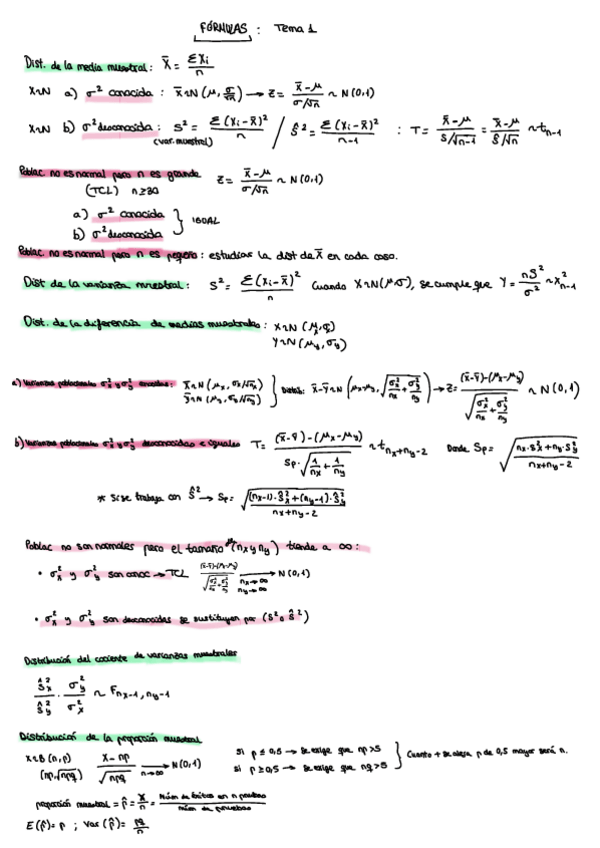 FÓRMULAS : Tema 1
Dist. de la media muestral: X̄ = ΣXi / n
X~N a) σ² conocida : X̄~N(μ, σ/√n) → Z = (X̄-μ)/(σ/√n) ~ N(0,1)
X~N b) σ² desconocida : S² = Σ(Xi-X̄)²/n / Ŝ² = Σ(Xi-X̄)²/(n-1) : T = (X̄-μ)/(S/√n-1) = (X̄-μ)/(Ŝ/√n) ~ tn-1
(var. muestral)
Poblac. no es normal pero n es grande Z = (X̄-μ)/(σ/√n) ~ N(0,1)
(TCL) n≥30
a) σ² conocida
b) σ² desconocida } IGUAL
Poblac. no es normal pero n es pequeño : estudiar la dist de X̄ en cada caso.
Dist de la varianza muestral: S² = Σ(Xi-X̄)²/n Cuando X~N(μ,σ), se cumple que Y = nS²/σ² ~ X²n-1
Dist. de la diferencia de medias muestrales : X~N(μx,σx)
Y~N(μy,σy)
a) Varianzas poblacionales σx² y σy² conocidas: X̄~N(μx, σx/√nx) Ȳ~N(μy, σy/√ny) } Distrib: X̄-Ȳ~N(μx-μy, √(σx²/nx + σy²/ny)) → Z = ((X̄-Ȳ)-(μx-μy))/√(σx²/nx + σy²/ny) ~ N(0,1)
b) Varianzas poblacionales σx² y σy² desconocidas e iguales T = ((X̄-Ȳ)-(μx-μy))/(Sp·√(1/nx + 1/ny)) ~ tnx+ny-2 Donde Sp = √((nx·Sx²+ny·Sy²)/(nx+ny-2))
* Si se trabaja con Ŝ² → Sp = √(((nx-1)·Ŝx²+(ny-1)·Ŝy²)/(nx+ny-2))
Poblac no son normales pero el tamaño (nx y ny) tiende a ∞ :
• σx² y σy² son conoc → TCL ((X̄-Ȳ)-(μx-μy))/√(σx²/nx + σy²/ny) → N(0,1) nx→∞ ny→∞
• σx² y σy² son desconocidas se sustituyen por (S² o Ŝ²)
Distribución del cociente de varianzas muestrales
Ŝx²/Ŝy² · σy²/σx² ~ Fnx-1, ny-1
Distribución de la proporción muestral
X~B(n,p) (X-np)/√npq → N(0,1) n→∞ si p ≤ 0,5 → se exige que np>5
(np, √npq) si p ≥ 0,5 → se exige que nq>5 } Cuanto + se aleja p de 0,5 mayor será n.
proporción muestral = p̂ = X/n = Núm de éxitos en n pruebas / núm de pruebas
E(p̂) = p ; Var(p̂) = pq/n